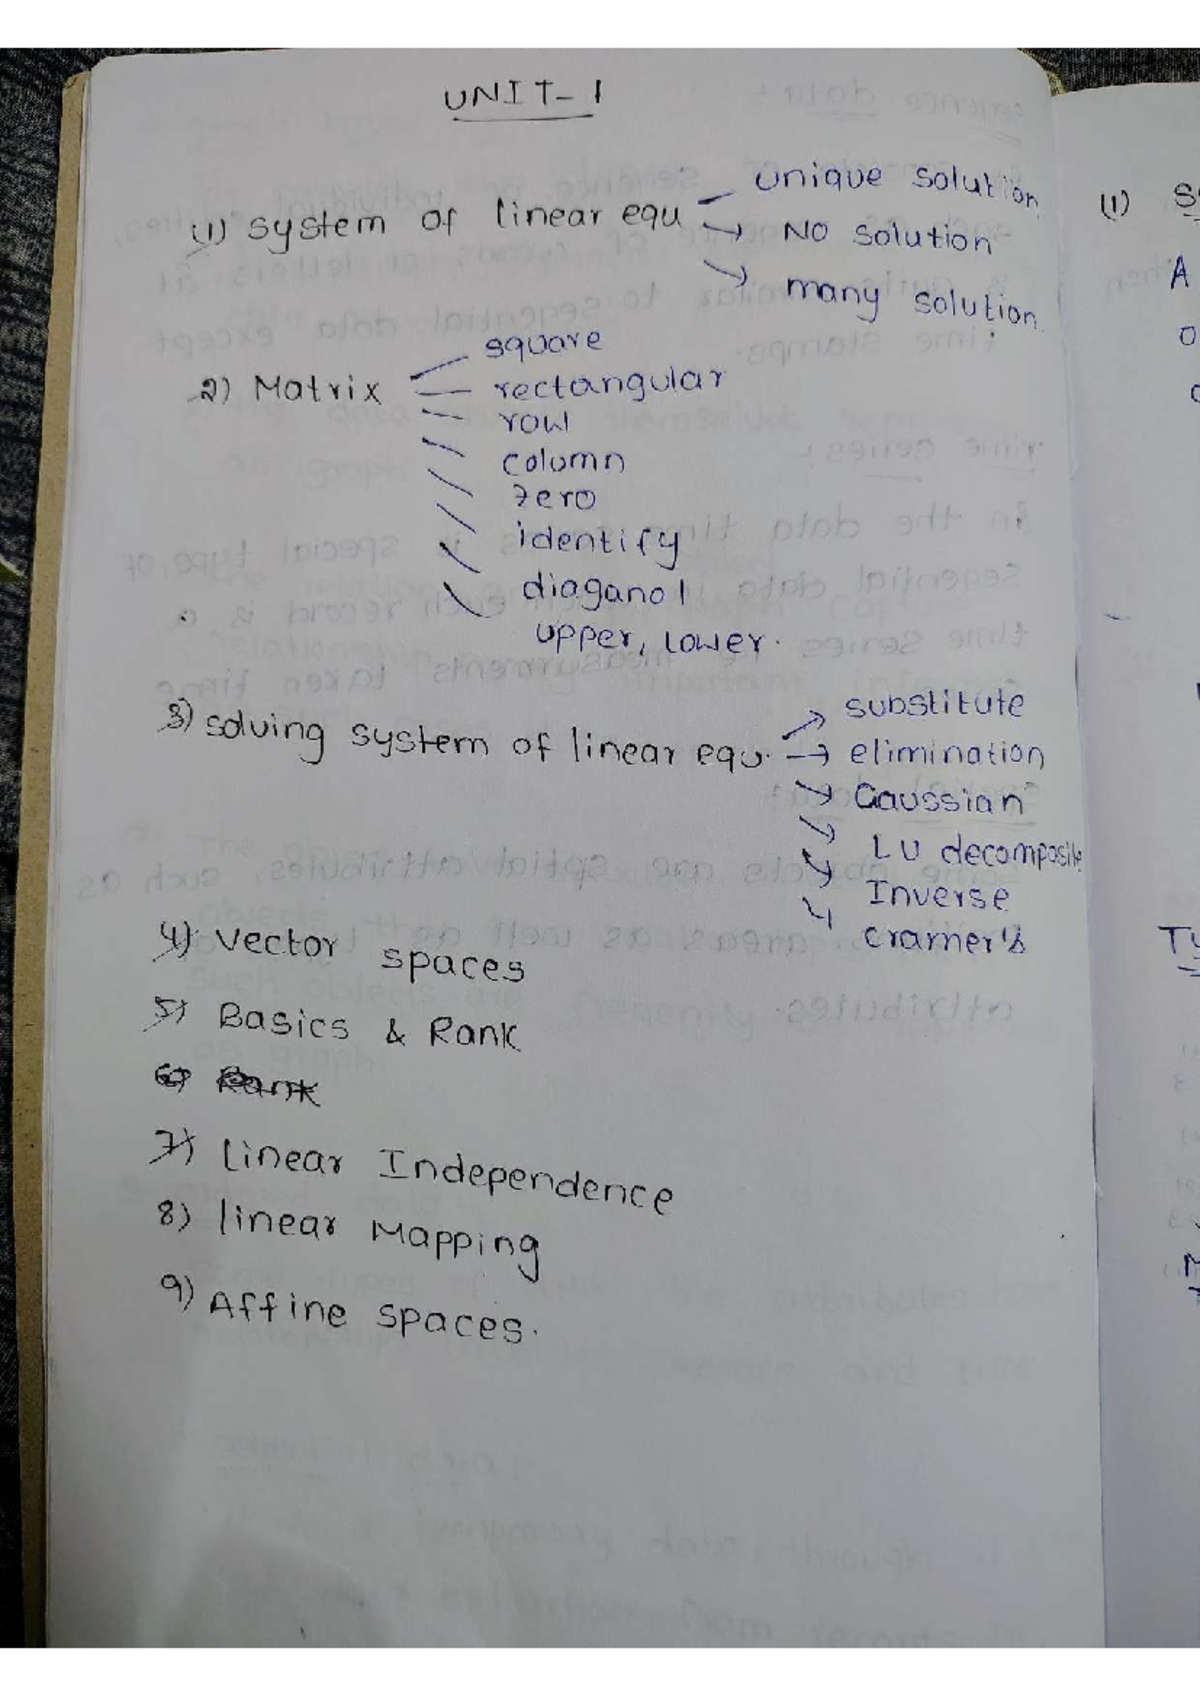 UNIT-1
(1) system of linear equ
unique solution
NO solution
many solution
2) Matrix
square
rectangular
row
column
zero
identify
diaganol
upper, Lower.
3) solving system of linear equ.
substitute
elimination
Gaussian
LU decomposite
Inverse
cramer's
4) Vector spaces
5) Basics & Rank
6) Rank
7) Linear Independence
8) linear Mapping
9) Affine spaces.
(1)
A